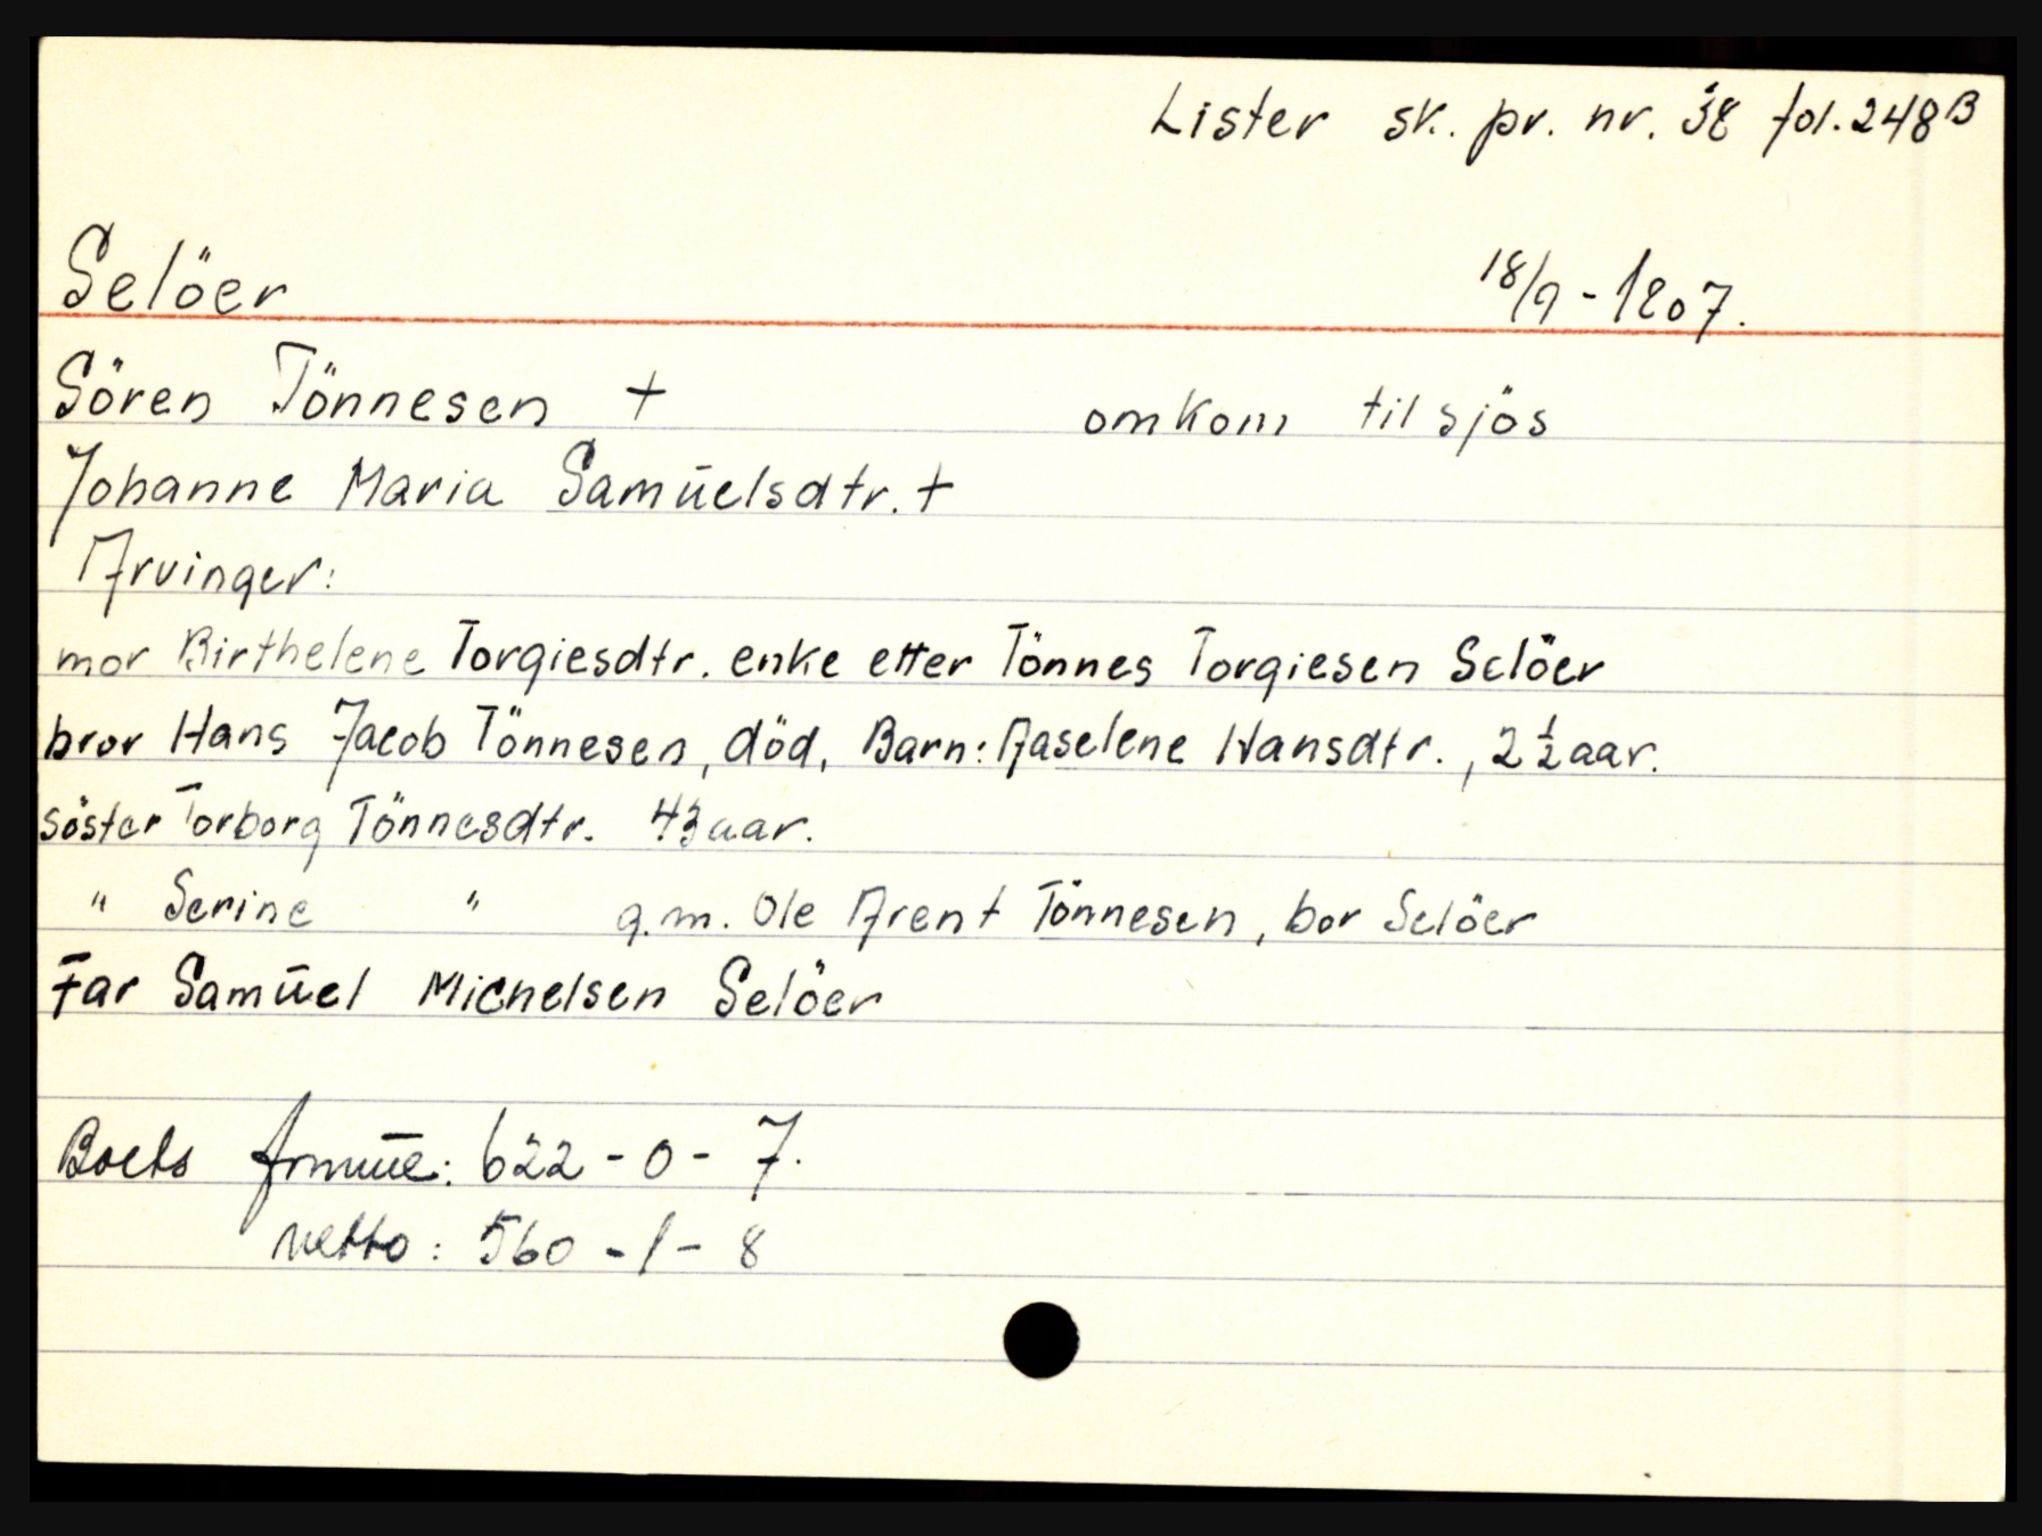 Lister sk. pr. nr. 38 fol. 248 B
Selöer 18/9 - 1807.
Sören Tönnesen + omkom til sjös
Johanne Maria Samūelsdtr. +
Arvinger:
mor Birthelene Torgiesdtr. enke etter Tönnes Torgiesen Selöer
bror Hans Jacob Tönnesen, död, Barn: Aaselene Hansdtr., 2 1/2 aar.
söster Torborg Tönnesdtr. 43 aar.
" Serine " g.m. Ole Arent Tönnesen, bor Selöer
Far Samūel Michelsen Selöer
Boets formūe: 622 - 0 - 7.
netto: 560 - 1 - 8